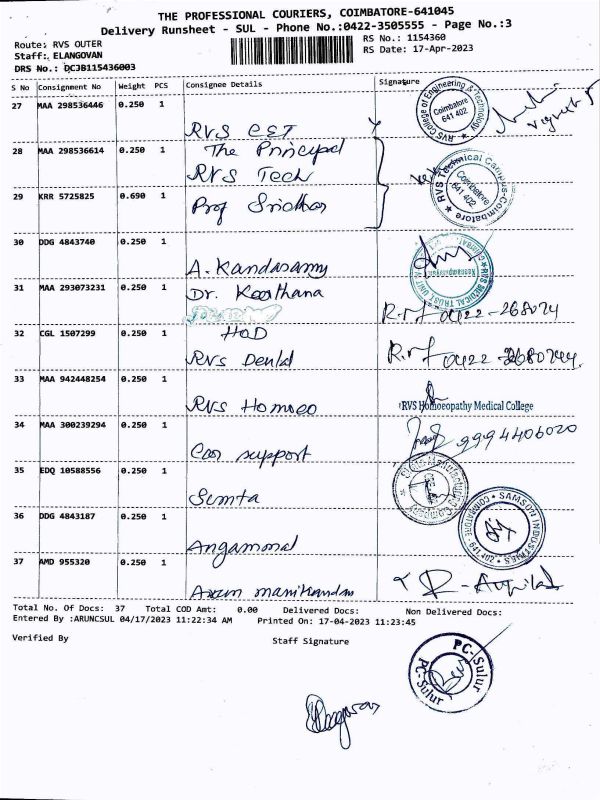 THE PROFESSIONAL COURIERS, COIMBATORE-641045
Delivery Runsheet - SUL - Phone No.:0422-3505555 - Page No.:3
Route: RVS OUTER
RS No.: 1154360
Staff: ELANGOVAN
RS Date: 17-Apr-2023
DRS No.: DCJB115436003
S No Consignment No Weight PCS Consignee Details Signature
27 MAA 298536446 0.250 1
RVS CET
RVS College of Engineering & Technology Coimbatore 641 402
28 MAA 298536614 0.250 1 The Principal
RVS Tech
RVS Technical Campus-Coimbatore Coimbatore 641 402
29 KRR 5725825 0.690 1 Prof Sridhar
30 DDG 4843740 0.250 1
A. Kandasamy
RVS MEDICAL TRUST UNIT
31 MAA 293073231 0.250 1 Dr. Keerthana
0422-268074
32 CGL 1507299 0.250 1 HOD
RVS Dental
33 MAA 942448254 0.250 1
RVS Homoeo
RVS Homoeopathy Medical College
34 MAA 300239294 0.250 1
Car support
9994406020
35 EDQ 10588556 0.250 1
Simta
36 DDG 4843187 0.250 1
Angammal
SAMSON INDUSTRIES COIMBATORE - 641 402
37 AMD 955320 0.250 1
Arun manikandan
Total No. Of Docs: 37 Total COD Amt: 0.00 Delivered Docs: Non Delivered Docs:
Entered By :ARUNCSUL 04/17/2023 11:22:34 AM Printed On: 17-04-2023 11:23:45
Verified By Staff Signature
PC-Sulur
PC-Sulur